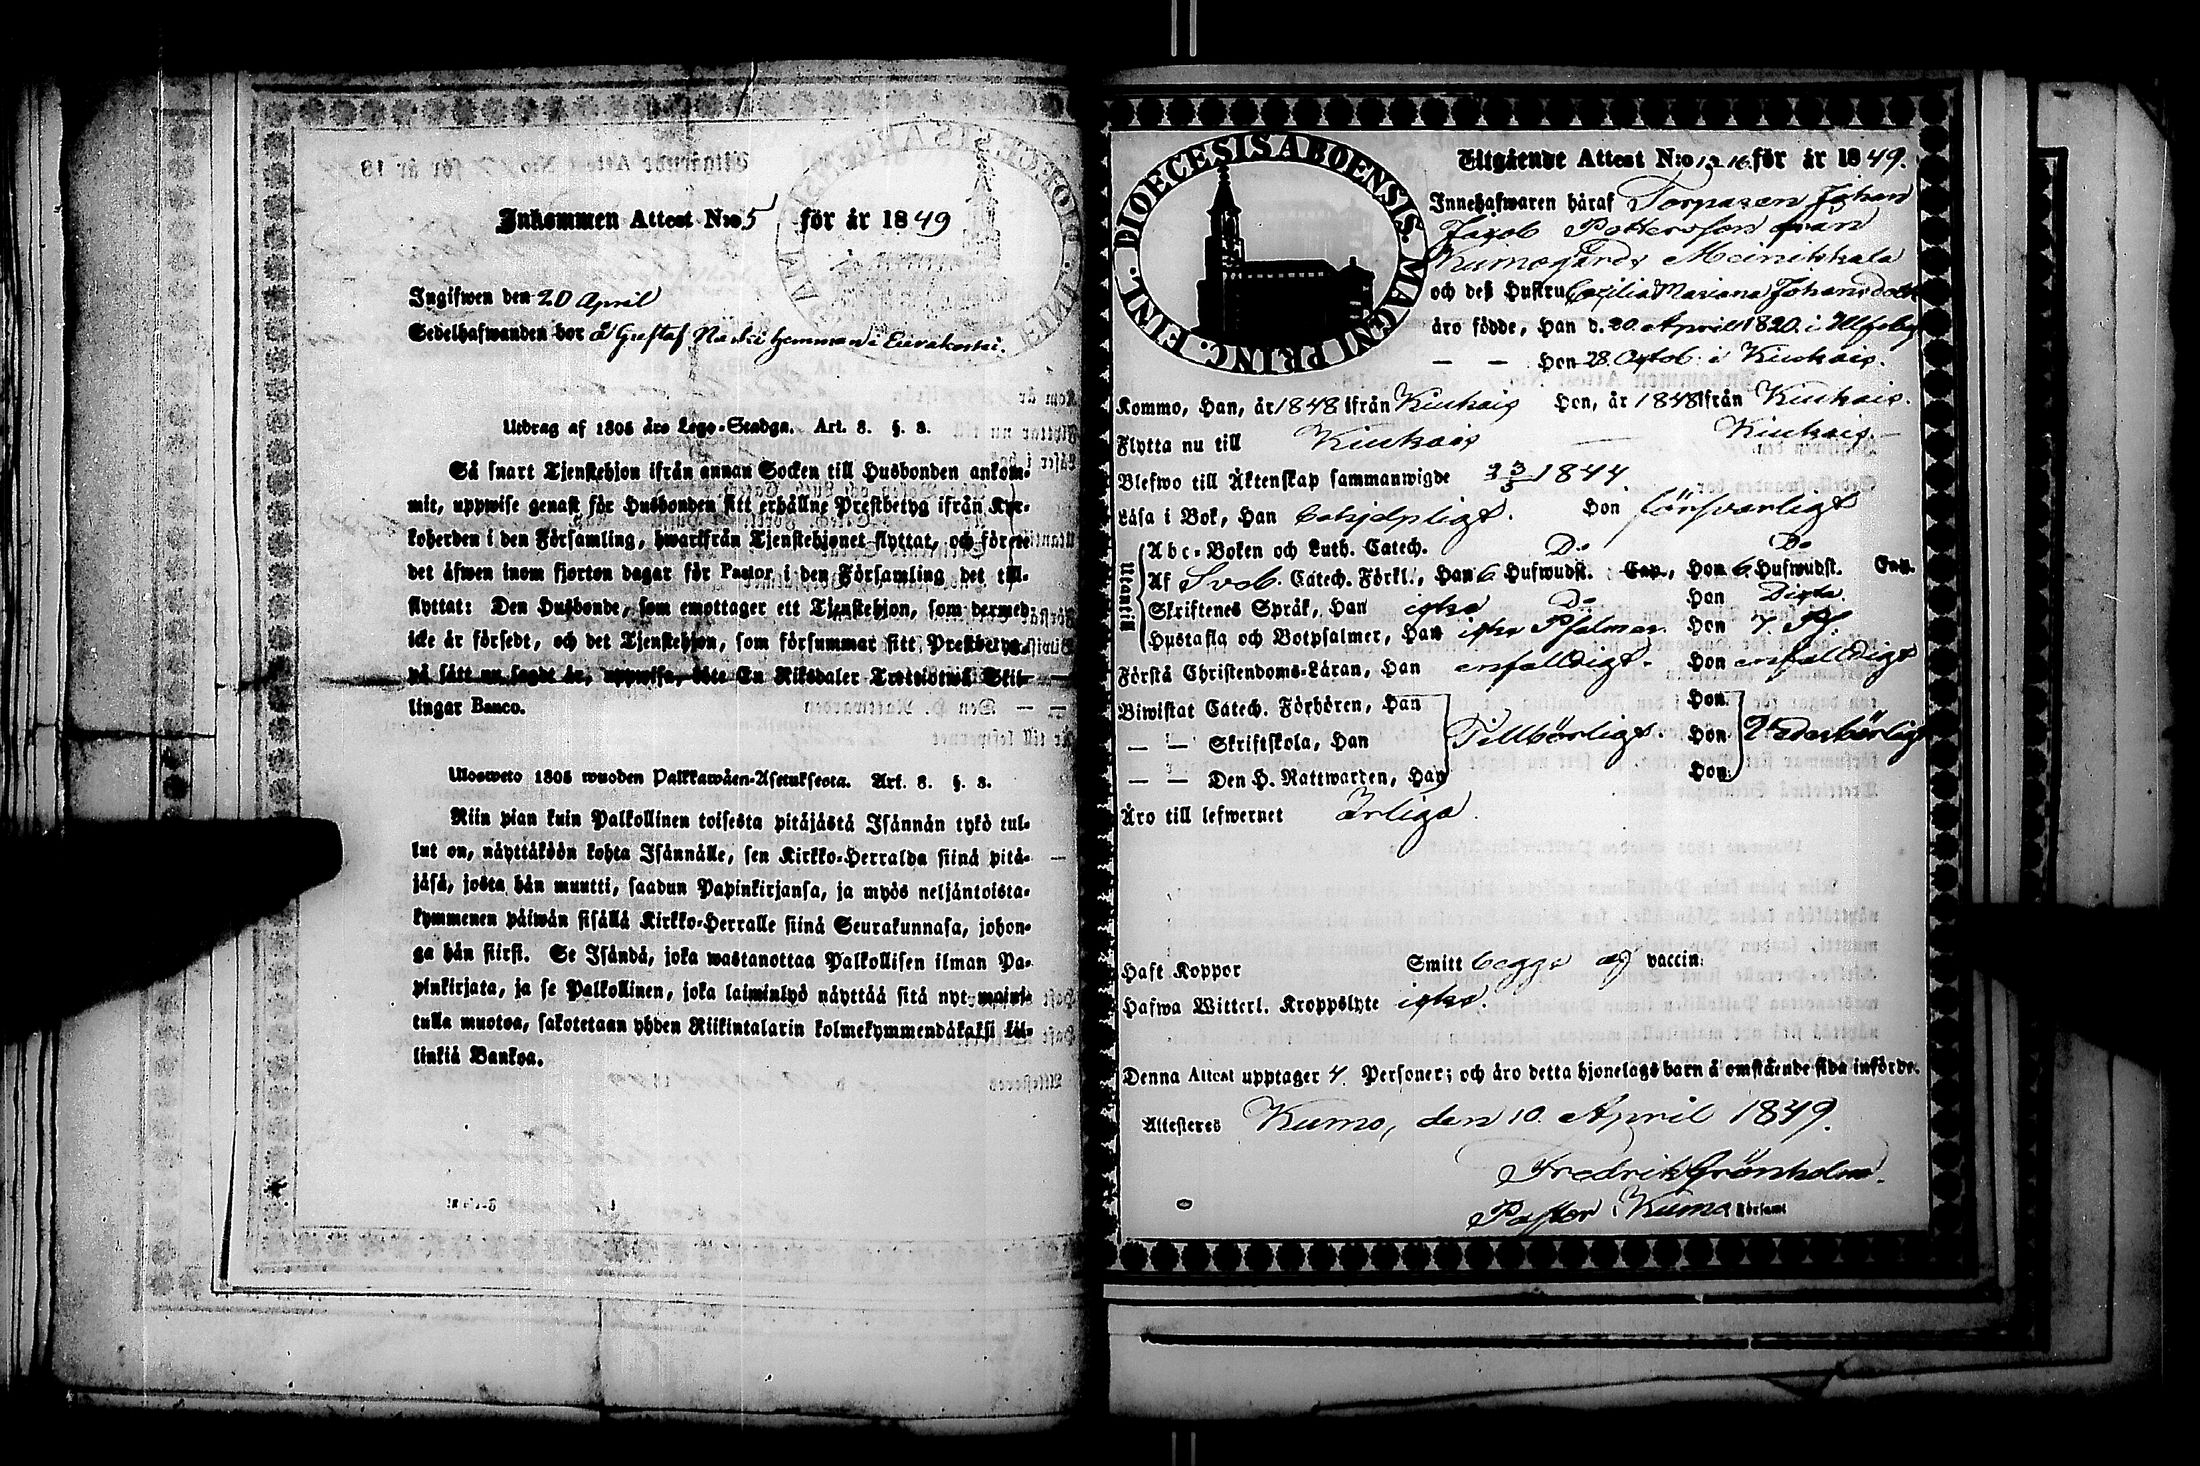 Inkommen Attest N:o 5 för år 1849
Ingifwen den 20 April
Sedelhafwanden bor å Gustaf hemman i Eurakoski.
Utdrag af 1805 års Lego-Stadga. Art. 8. §. 3.
Så snart Tjenstehjon ifrån annan Socken till Husbonden ankom-
mit, uppwise genast för Husbonden sitt erhållne Prestbetyg ifrån Kyr-
koherden i den Församling, hwarifrån Tjenstehjonet flyttat, och förete
det äfwen inom fjorton dagar för Pastor i den Församling det till-
flyttat: Den Husbonde, som emottager ett Tjenstehjon, som dermed
icke är försedt, och det Tjenstehjon, som försummar sitt Prestbetyg
på sätt nu sagdt är, uppwisa, böte En Riksdaler Trettiotwå Skil-
lingar Banco.
Ulosweto 1805 wuoden Palkkawäen-Asetuksesta. Art. 8. §. 3.
Niin pian kuin Palkollinen toisesta pitäjästä Isännän tykö tul-
lut on, näyttäköön kohta Isännälle, sen Kirkko-Herralda siinä pitä-
jäsä, josta hän muutti, saadun Papinkirjansa, ja myös neljäntoista-
kymmenen päiwän sisällä Kirkko-Herralle siinä Seurakunnasa, johon-
ga hän siirsi. Se Isändä, joka wastanottaa Palkollisen ilman Pa-
pinkirjata, ja se Palkollinen, joka laiminlyö näyttää sitä nyt mainit-
tulla muotoa, sakotetaan yhden Riikintalarin kolmekymmendäkaksi kil-
linkiä Bankoa.
FINL. DIOECESIS ABOENSIS. MAGNI PRINC.
Utgående Attest N:o för år 1849.
Innehafwaren häraf Torparen Johan
Jacob Pettersson från
Kumogårds Meinikkala
och deß Hustru Cecilia Mariana Johansdotter
äro födde, Han d. 20 April 1820 i Ulfsby
— — Hon 28 Octob. i Kiukais.
Kommo, Han, år 1848 ifrån Kiukais Hon, år 1848 ifrån Kiukais.
Flytta nu till Kiukais — Kiukais.
Blefwo till Äktenskap sammanwigde 23/3 1844.
Läsa i Bok, Han behjelpligt. Hon försvarligt
Utantill
Abc-Boken och Luth. Catech. Do Do
Af Sveb. Catech. Förkl., Han 6 Hufwudst. Cap., Hon 6 Hufwudst. Cap.
Skriftenes Språk, Han icke Do Hon Dicta.
Hustafla och Botpsalmer, Han icke Psalmer. Hon 7. Ps.
Förstå Christendoms-Läran, Han enfalldigt. Hon enfalldigt
Biwistat Catech. Förhören, Han Hon
— — Skriftskola, Han Tillbörligt. Hon Vederbörligt
— — Den H. Nattwarden, Han Hon
Äro till lefwernet Ärliga.
Haft Koppor Smitt begge af vaccin:
Hafwa Witterl. Kroppslyte icke.
Denna Attest upptager 4. Personer; och äro detta hjonelags barn å omstående sida införde.
Attesteres Kumo, den 10. April 1849.
Fredrik Grönholm.
Pastor i Kumo Församl